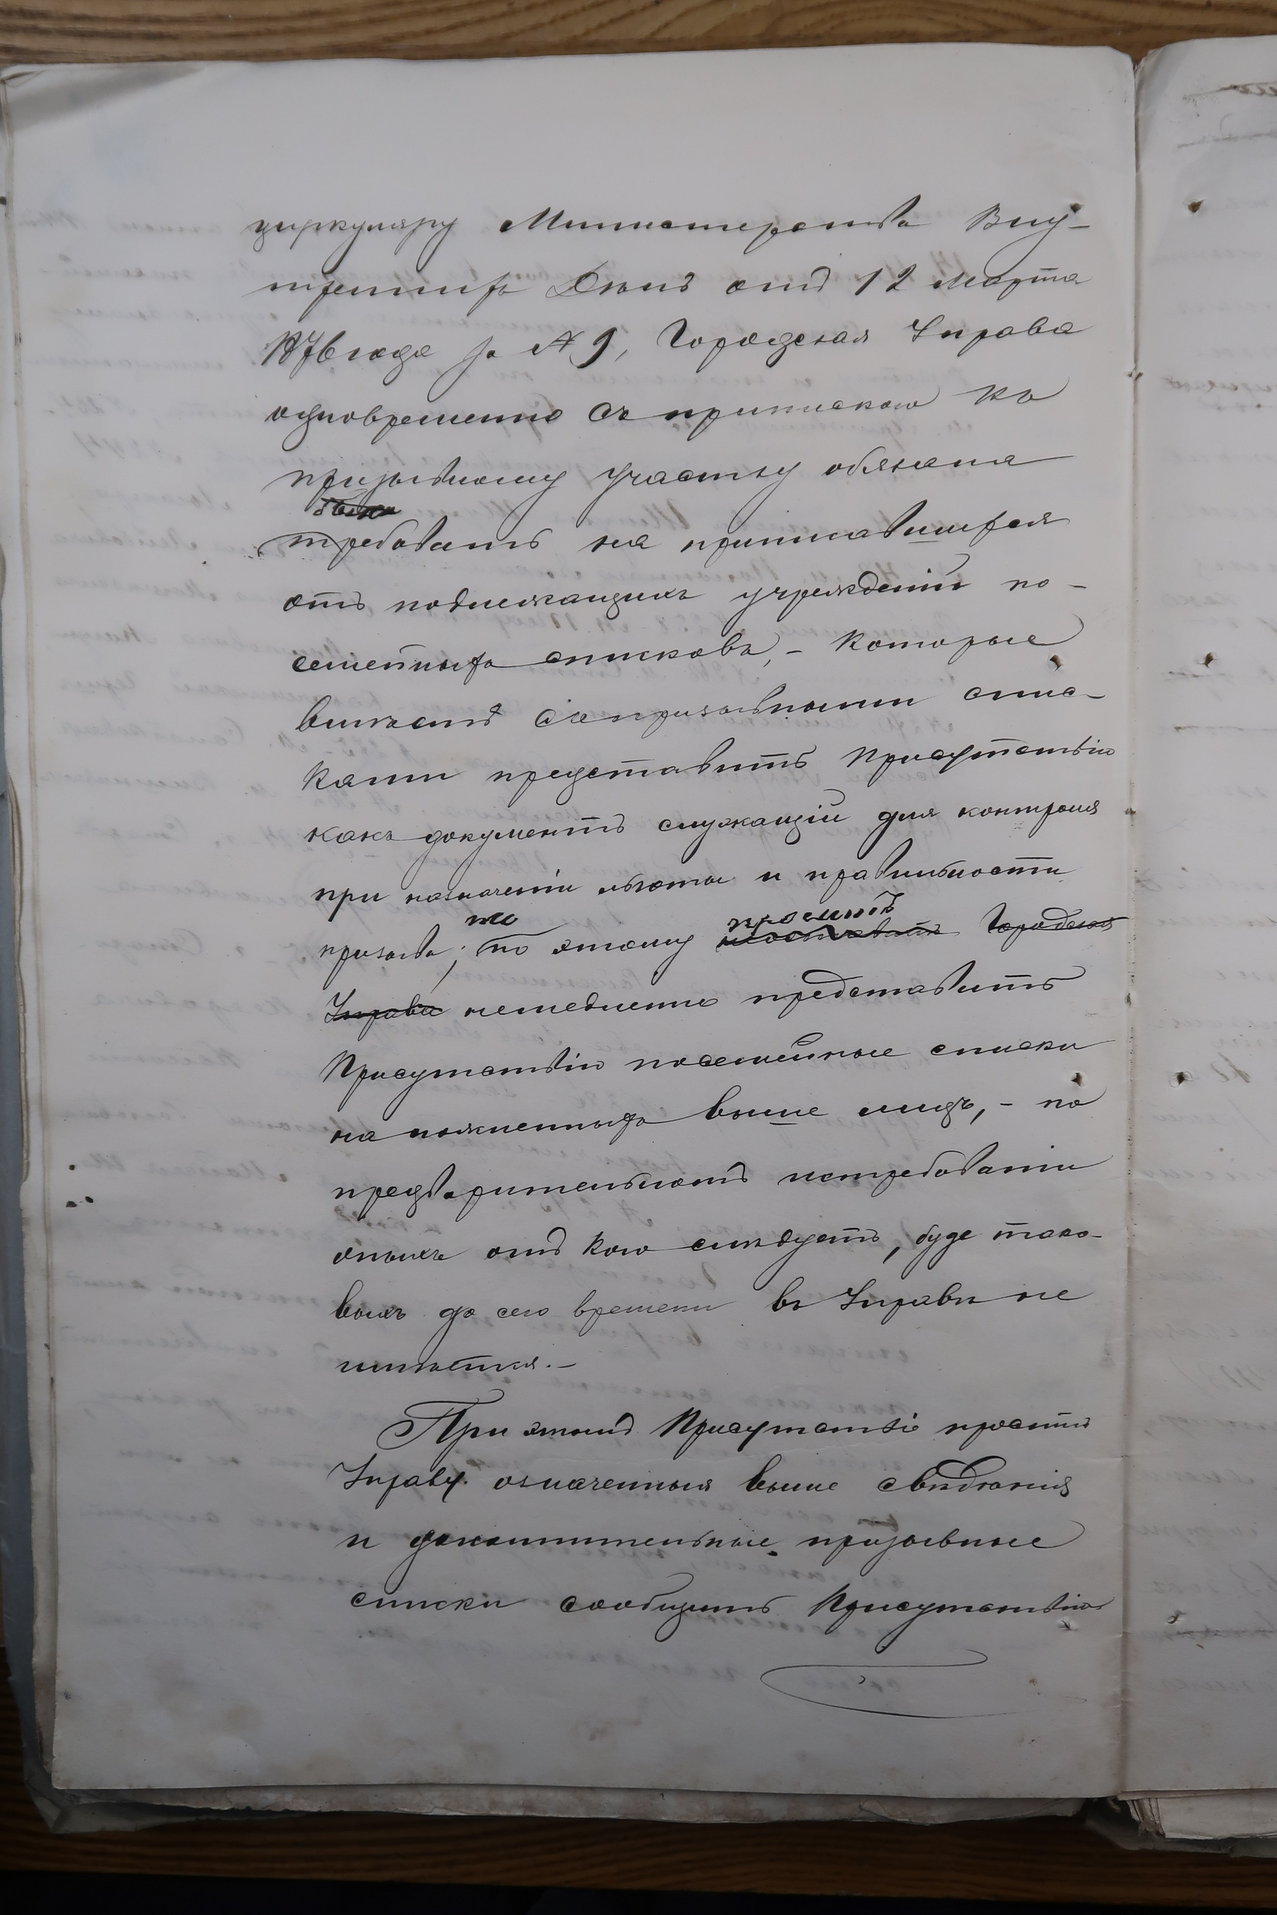 циркуляру Министерства Вну-
треннихъ Делъ отъ 12 Марта
1876 года за № 9, Городская Управа
одновременно съ припискою къ
призывному участку обязана
требовать на приписавшихся
отъ подлежащихъ учрежденій по-
семейныхъ списковъ, – которые
вместе съ призывными спис-
ками представить Присутствію
какъ документъ служащій для контроля
при назначеніи льготы и правильности
призыва; по этому проситъ Городской
то
Управе немедленно представить
Присутствію посемейные списки
на поясненныхъ выше лицъ, – по
предварительномъ истребованіи
оныхъ отъ кого следуетъ, буде тако-
выхъ до сего времени въ Управе не
имеется. –
При этомъ Присутствіе проситъ
Управу означенныя выше сведенія
и дополнительные призывные
списки сообщить Присутствію